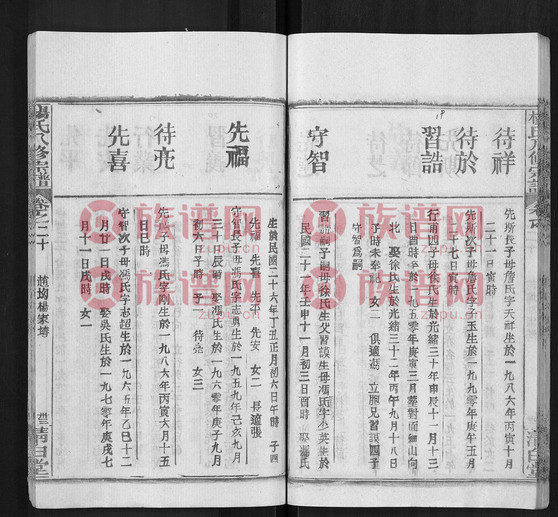 待祥
先所長子母詹氏字天祥生於一九八六年丙寅十月
二十一日寅時
待於
先所次子母詹氏字玉生於一九九零年庚午五月
十七日寅時
習誥
行甫四子母徐氏生於光緒三十年申辰十一月十三
日酉時
北 娶徐氏生於光緒三十二年丙午九月十八日
子時未奉祠 女二 俱適
守智為嗣
守智
習誥嗣子嗣母徐氏生父習謨生母馮氏字少英生於
民國二十一年壬申十一月初三日酉時 娶馮氏
生於民國二十六年丁丑正月初六日午時 子四
先福 先喜 先 先安 女二 長適張
先福
守智長子母馮氏字志勇生於一九五九年己亥九月
三十日辰時 娶馮氏生於一九六零年庚子九月
初六日子時 子一 待亮 女三
待亮
先福子母馮氏字剛生於一九八六年丙寅六月十五
日巳時
先喜
守智次子母馮氏字志超生於一九六五年乙巳十二
月廿一日戌時 娶吳氏生於一九七零年庚戌七
月十一日戌時 女一
楊氏八修宗譜
卷之二十
趙坳楊家塆
清白堂
族谱网
zupu.cn